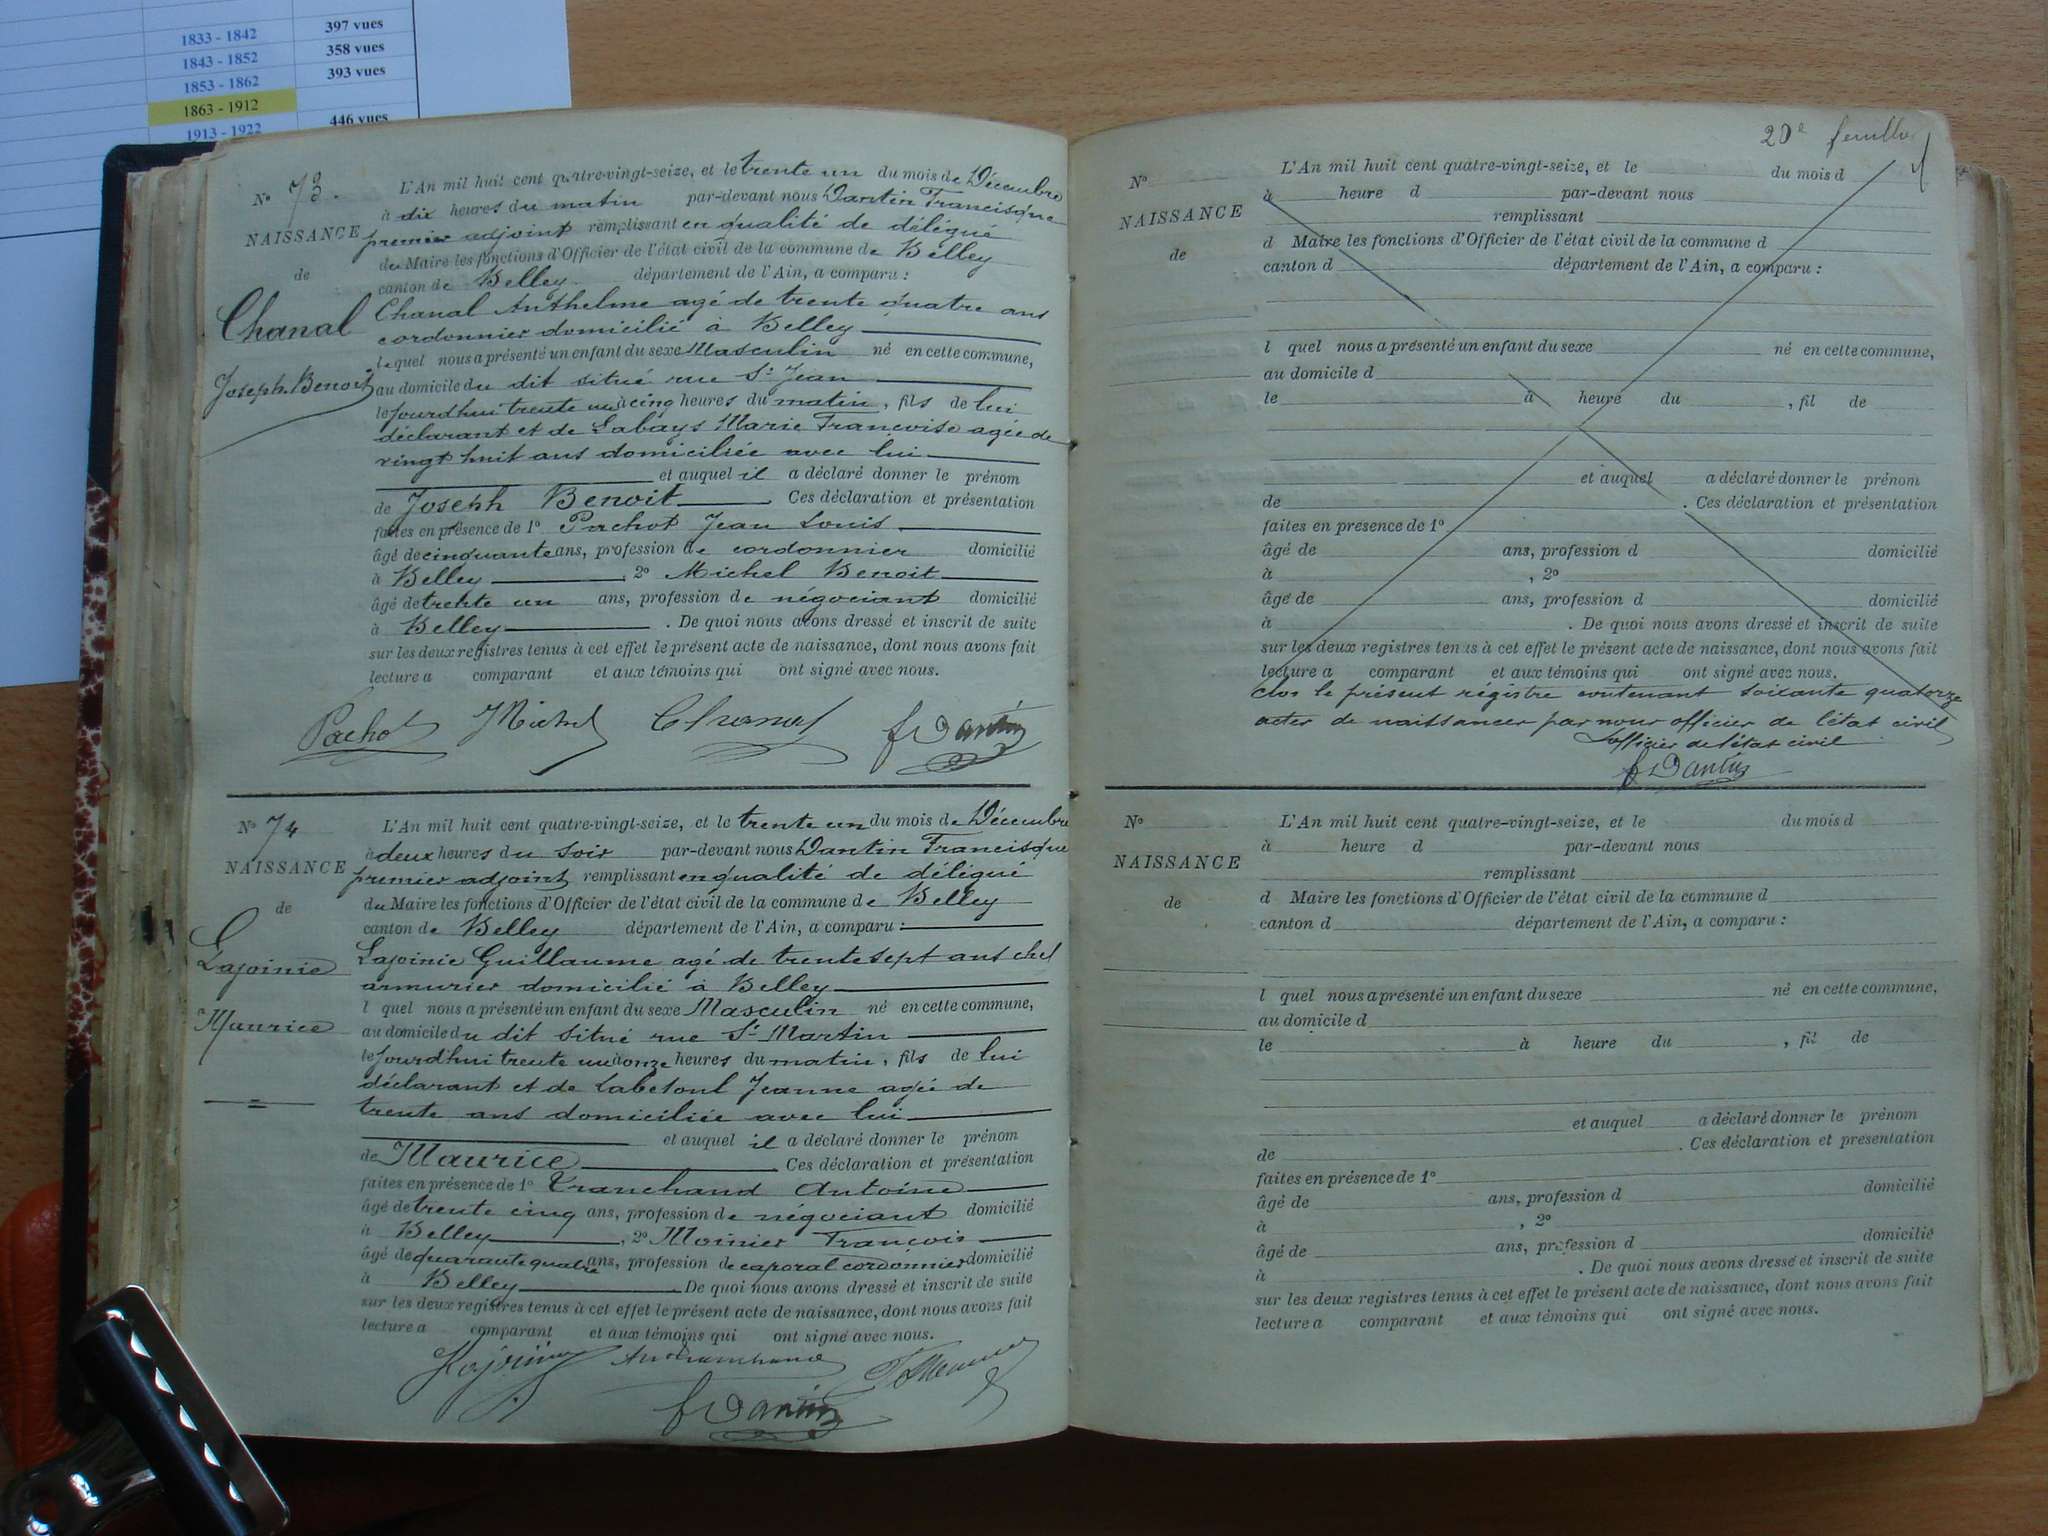 397 vues
1833 - 1842
358 vues
1843 - 1852
393 vues
1853 - 1862
1863 - 1912
446 vues
1913 - 1922
N° 73.
NAISSANCE
de
Chanal
Joseph Benoit
L'An mil huit cent quatre-vingt-seize, et le trente un du mois de Décembre
à dix heures du matin par-devant nous Dantin Francisque
premier adjoint remplissant en qualité de délégué
du Maire les fonctions d'Officier de l'état civil de la commune de Belley
canton de Belley département de l'Ain, a comparu :
Chanal Anthelme agé de trente quatre ans
cordonnier domicilié à Belley
lequel nous a présenté un enfant du sexe Masculin né en cette commune,
au domicile du dit situé rue St Jean
le jourdhui trente un à cinq heures du matin, fils de lui
déclarant et de Labays Marie Francoise agée de
vingt huit ans domiciliée avec lui
et auquel il a déclaré donner le prénom
de Joseph Benoit. Ces déclaration et présentation
faites en présence de 1° Pachot Jean Louis
âgé de cinquante ans, profession de cordonnier domicilié
à Belley, 2° Michel Benoit
âgé de trente un ans, profession de négociant domicilié
à Belley. De quoi nous avons dressé et inscrit de suite
sur les deux registres tenus à cet effet le présent acte de naissance, dont nous avons fait
lecture a comparant et aux témoins qui ont signé avec nous.
Pachot Michel Chanal f Dantin
N° 74
NAISSANCE
de
Lajoinie
Maurice
L'An mil huit cent quatre-vingt-seize, et le trente un du mois de Décembre
à deux heures du soir par-devant nous Dantin Francisque
premier adjoint remplissant en qualité de délégué
du Maire les fonctions d'Officier de l'état civil de la commune de Belley
canton de Belley département de l'Ain, a comparu :
Lajoinie Guillaume agé de trente sept ans chef
armurier domicilié à Belley
l quel nous a présenté un enfant du sexe Masculin né en cette commune,
au domicile du dit situé rue St Martin
le jourdhui trente un à onze heures du matin, fils de lui
déclarant et de Labetoul Jeanne agée de
trente ans domiciliée avec lui
et auquel il a déclaré donner le prénom
de Maurice Ces déclaration et présentation
faites en présence de 1° Tranchand Antoine
âgé de trente cinq ans, profession de négociant domicilié
à Belley, 2° Moinier François
âgé de quarante quatre ans, profession de caporal cordonnier domicilié
à Belley. De quoi nous avons dressé et inscrit de suite
sur les deux registres tenus à cet effet le présent acte de naissance, dont nous avons fait
lecture a comparant et aux témoins qui ont signé avec nous.
Lajoinie
f Dantin
20e feuillet
N°
NAISSANCE
de
L'An mil huit cent quatre-vingt-seize, et le du mois d
à heure d par-devant nous
remplissant
d Maire les fonctions d'Officier de l'état civil de la commune d
canton d département de l'Ain, a comparu :
l quel nous a présenté un enfant du sexe né en cette commune,
au domicile d
le à heure du , fil de
et auquel a déclaré donner le prénom
de . Ces déclaration et présentation
faites en présence de 1°
âgé de ans, profession d domicilié
à , 2°
âgé de ans, profession d domicilié
à . De quoi nous avons dressé et inscrit de suite
sur les deux registres tenus à cet effet le présent acte de naissance, dont nous avons fait
lecture a comparant et aux témoins qui ont signé avec nous.
clos le présent régistre contenant soixante quatorze
actes de naissances par nous officier de l'état civil
L'officier de l'état civil
f Dantin
N°
NAISSANCE
de
L'An mil huit cent quatre-vingt-seize, et le du mois d
à heure d par-devant nous
remplissant
d Maire les fonctions d'Officier de l'état civil de la commune d
canton d département de l'Ain, a comparu :
l quel nous a présenté un enfant du sexe né en cette commune,
au domicile d
le à heure du , fil de
et auquel a déclaré donner le prénom
de . Ces déclaration et présentation
faites en présence de 1°
âgé de ans, profession d domicilié
à , 2°
âgé de ans, profession d domicilié
à . De quoi nous avons dressé et inscrit de suite
sur les deux registres tenus à cet effet le présent acte de naissance, dont nous avons fait
lecture a comparant et aux témoins qui ont signé avec nous.